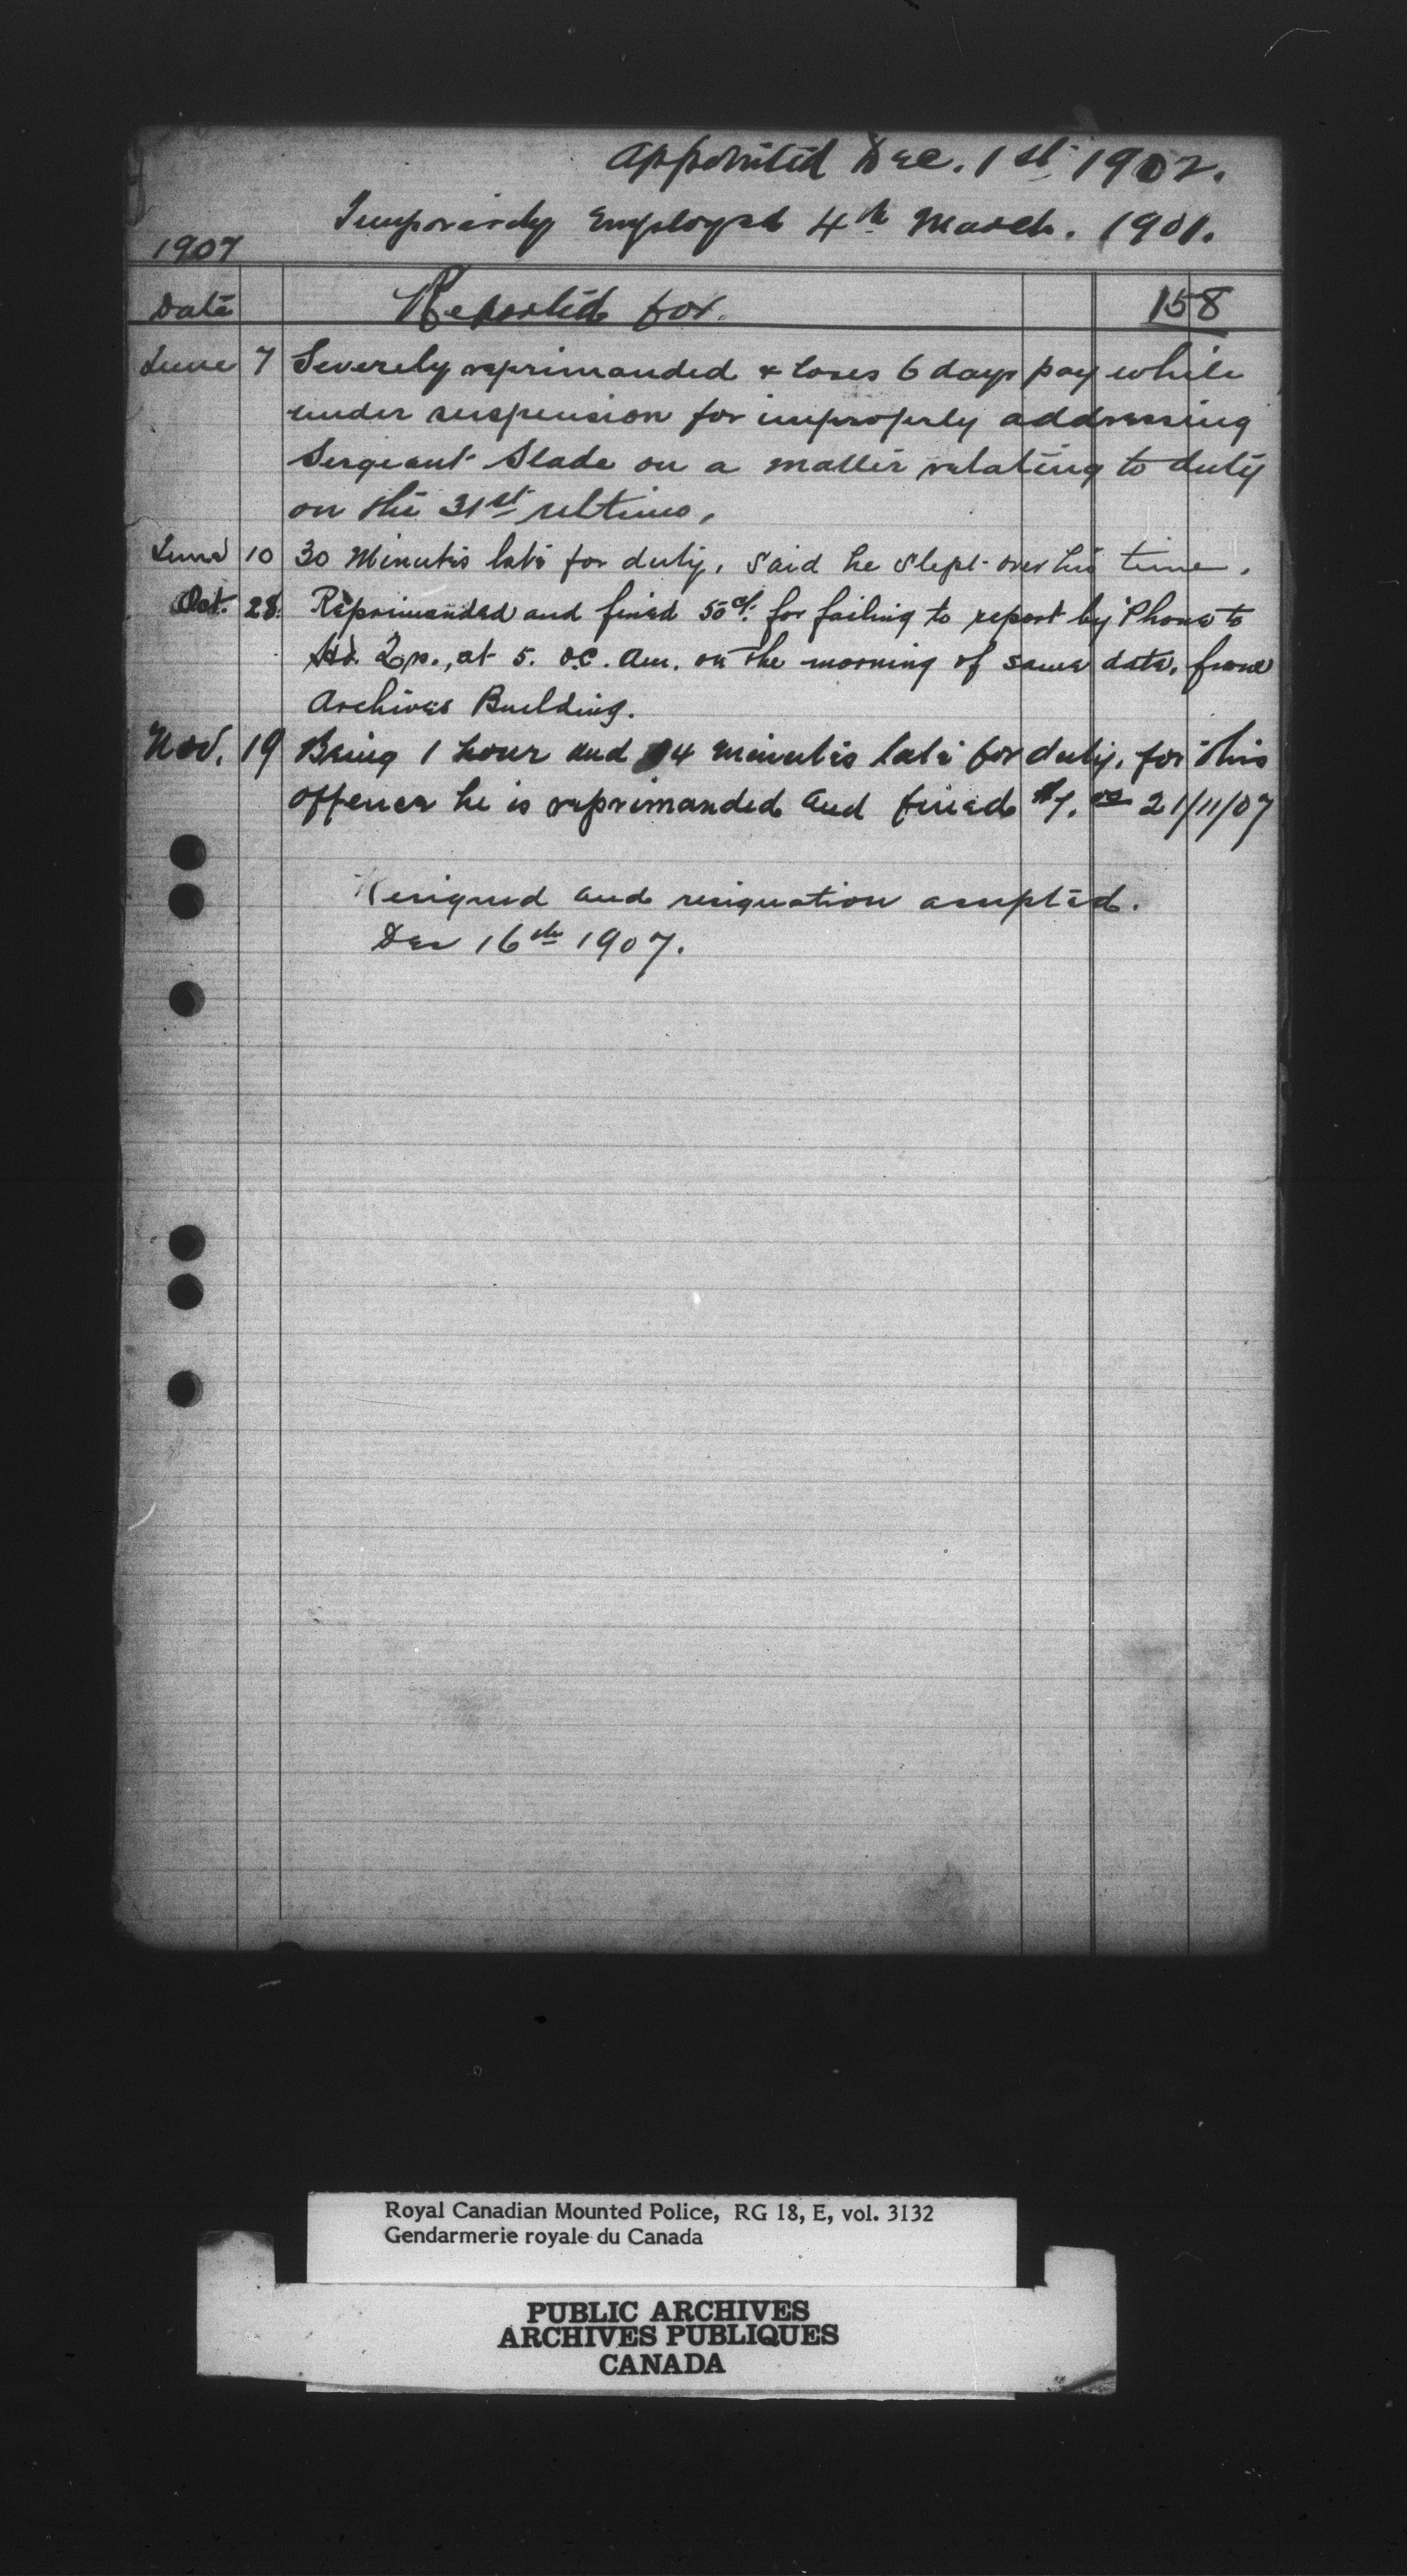 Appointed Dec. 1st 1902.
Temporarily Employed 4th March. 1901.
1907
Date Reported for. 158
June 7 Severely reprimanded & loses 6 days pay while
under suspension for improperly addressing
Sergeant Slade on a matter relating to duty
on the 31st ultimo,
June 10 30 Minutes late for duty, said he slept over his time.
Oct. 28. Reprimanded and fined 50 cts. for failing to report by 'Phone to
Hd. Qrs., at 5. o.c. am. on the morning of same date, from
Archives Building.
Nov. 19 Being 1 hour and 4 minutes late for duty, for this
offence he is reprimanded and fined $1.00 21/11/07
Resigned and resignation accepted.
Dec 16th 1907.
Royal Canadian Mounted Police, RG 18, E, vol. 3132
Gendarmerie royale du Canada
PUBLIC ARCHIVES
ARCHIVES PUBLIQUES
CANADA